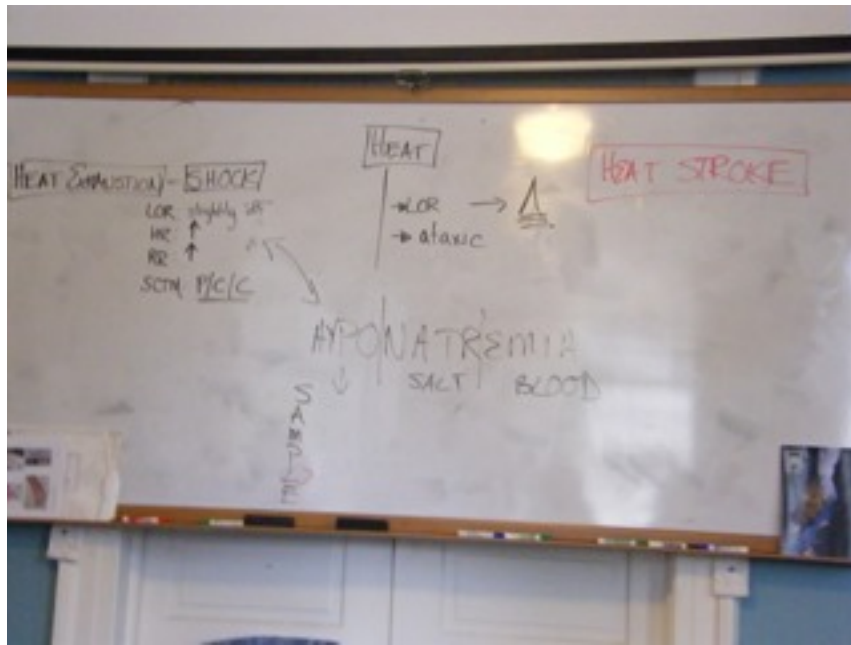 HEAT
HEAT EXHAUSTION - SHOCK
LOR slightly
HR ↑
RR ↑
SCTM P/C/C
→ LOR → Δ
→ ataxic
HEAT STROKE
HYPO/NATR/EMIA
↓ SALT BLOOD
SAMPLE